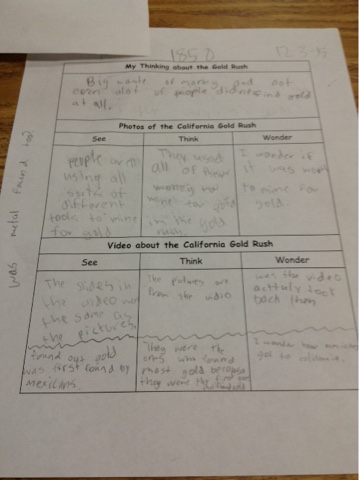 1850 12-3-15
My Thinking about the Gold Rush
Big waste of money and not
even alot of people
at all.
Photos of the California Gold Rush
See Think Wonder
people are
using all
sorts of
different
tools to mine
for gold
They used
all of their
money
for gold
in the gold
rush.
I wonder if
it was
to mine for
gold.
was metal found too
Video about the California Gold Rush
See Think Wonder
The slides in
the video
the same as
the pictures.
The pictures are
from the
was the video
back then
found out gold
was first found by
mexicans
They were the
ones who found
most gold because
they were the first
I wonder how
got to california.